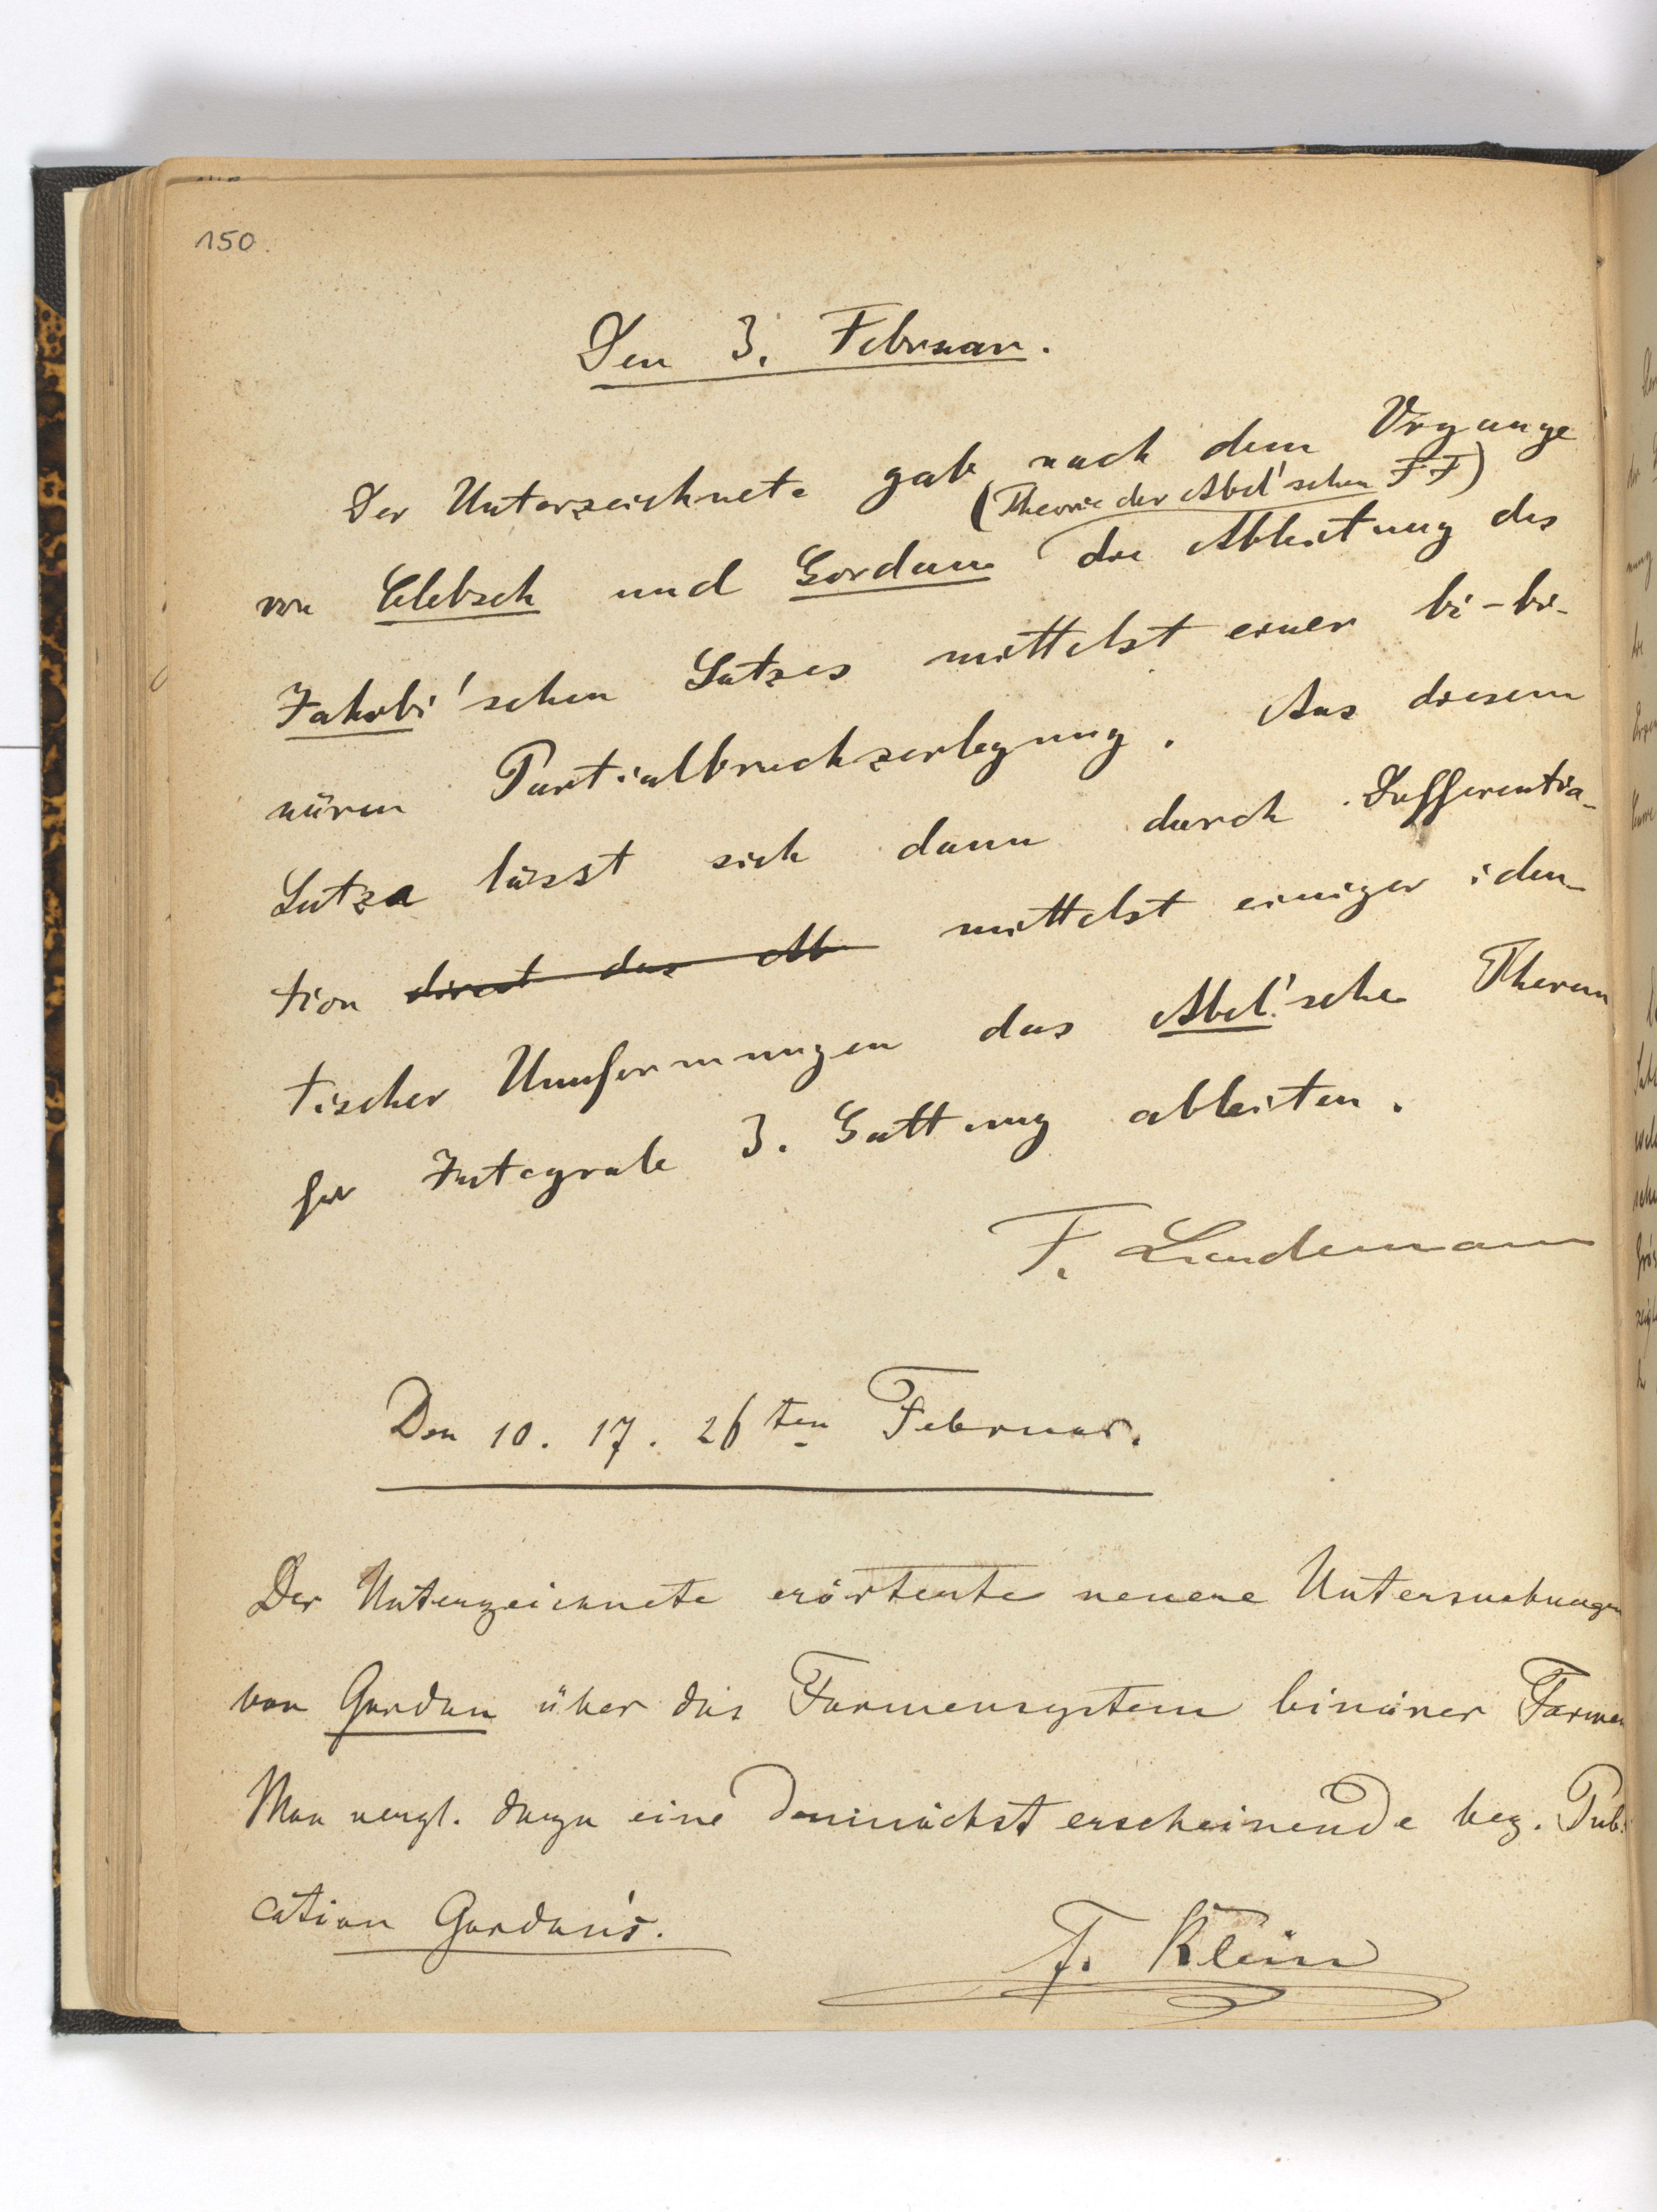 150.
Den 3. Februar.
Der Unterzeichnete gab nach dem Vrgange
(Theorie der Abel'schen F F)
von Clebsch und Gordan die Ableitung des
Jakobi'schen Satzes mittelst einer bi-bi-
nären Partialbruchzerlegung. Aus diesem
Satze lässt sich dann durch Differentia-
tion direct das Ab mittelst einiger iden-
tischer Umformungen das Abel'sche Theorem
für Integrale 3. Gattung ableiten.
F. Lindemann
Den 10. 17. 26ten Februar.
Der Unterzeichnete erörterte neuere Untersuchungen
von Gordan über das Formensystem binärer Formen
Man vergl. dazu eine demnächst erscheinende bez. Publi
cation Gordan's.
F. Klein